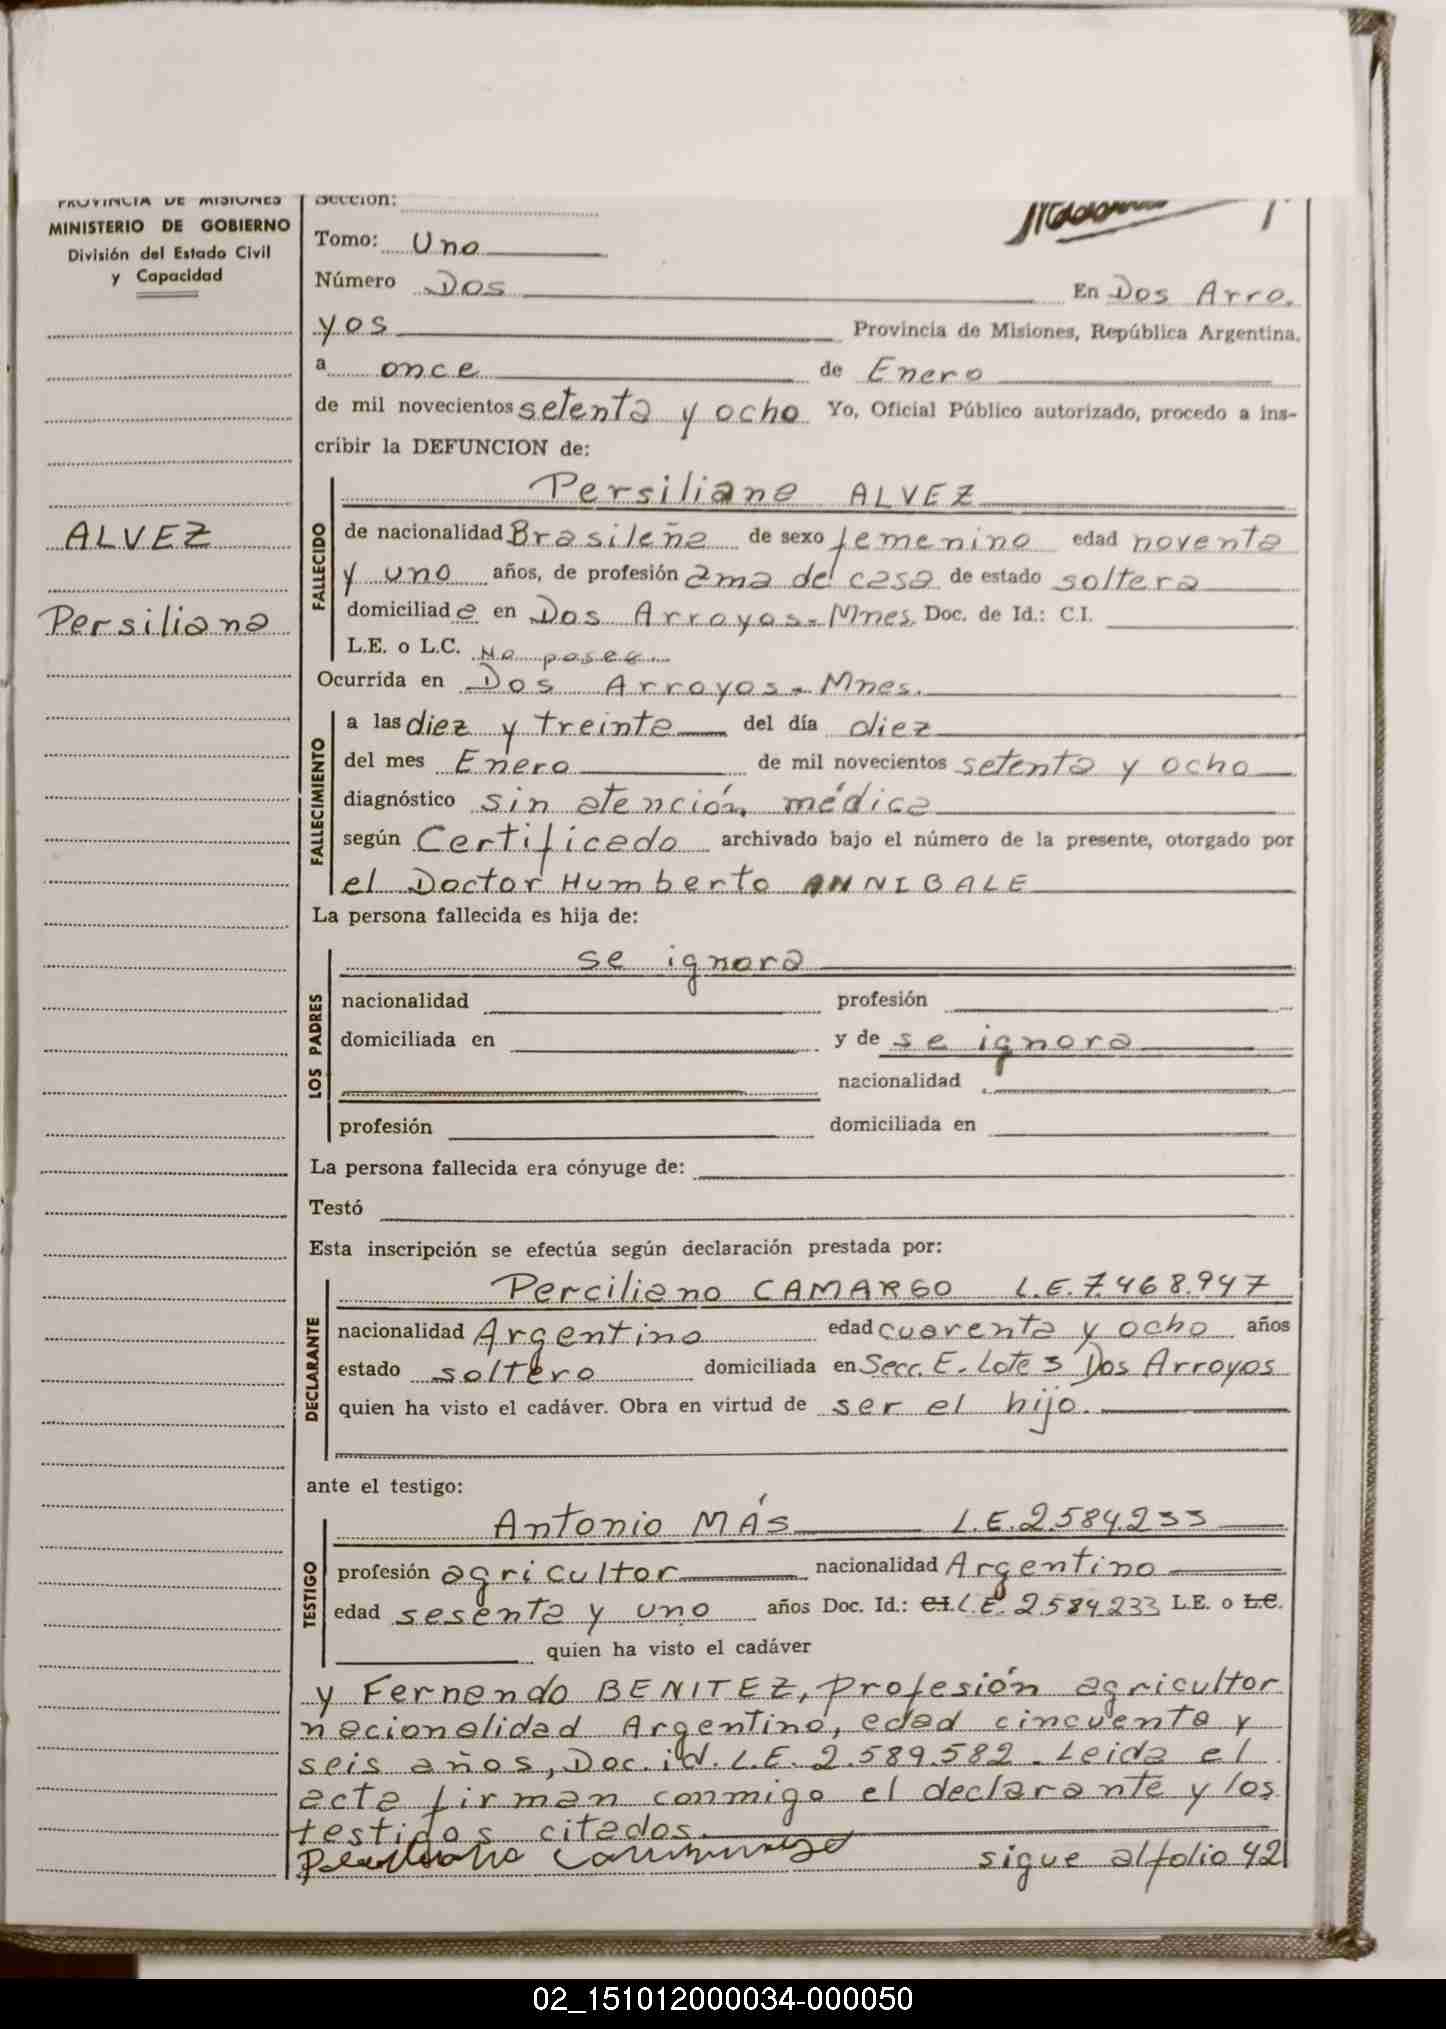 PROVINCIA DE MISIONES
MINISTERIO DE GOBIERNO
División del Estado Civil
y Capacidad
ALVEZ
Persiliana
Sección:
Tomo: Uno
Número Dos En Dos Arro.
yos Provincia de Misiones, República Argentina,
a once de Enero
de mil novecientos setenta y ocho Yo, Oficial Público autorizado, procedo a ins-
cribir la DEFUNCION de:
FALLECIDO
Persiliana ALVEZ
de nacionalidad Brasileña de sexo femenino edad noventa
y uno años, de profesión ama de casa de estado soltera
domiciliada en Dos Arroyos-Mnes. Doc. de Id.: C.I.
L.E. o L.C. No posee
Ocurrida en Dos Arroyos-Mnes.
FALLECIMIENTO
a las diez y treinta del día diez
del mes Enero de mil novecientos setenta y ocho
diagnóstico sin atención médica
según Certificado archivado bajo el número de la presente, otorgado por
el Doctor Humberto ANNIBALE
La persona fallecida es hija de:
LOS PADRES
se ignora
nacionalidad profesión
domiciliada en y de se ignora
nacionalidad
profesión domiciliada en
La persona fallecida era cónyuge de:
Testó
Esta inscripción se efectúa según declaración prestada por:
DECLARANTE
Perciliano CAMARGO L.E.7.468.947
nacionalidad Argentino edad cuarenta y ocho años
estado soltero domiciliada en Secc. E. Lote 3 Dos Arroyos
quien ha visto el cadáver. Obra en virtud de ser el hijo.
ante el testigo:
TESTIGO
Antonio MÁS L.E.2.584.233
profesión agricultor nacionalidad Argentino
edad sesenta y uno años Doc. Id.: C.I. L.E. 2.584.233 L.E. o L.C.
quien ha visto el cadáver
y Fernando BENITEZ, profesión agricultor
nacionalidad Argentino, edad cincuenta y
seis años, Doc. id. L.E. 2.589.582. Leida el
acta firman conmigo el declarante y los
testigos citados.
sigue al folio 42
02_151012000034-000050